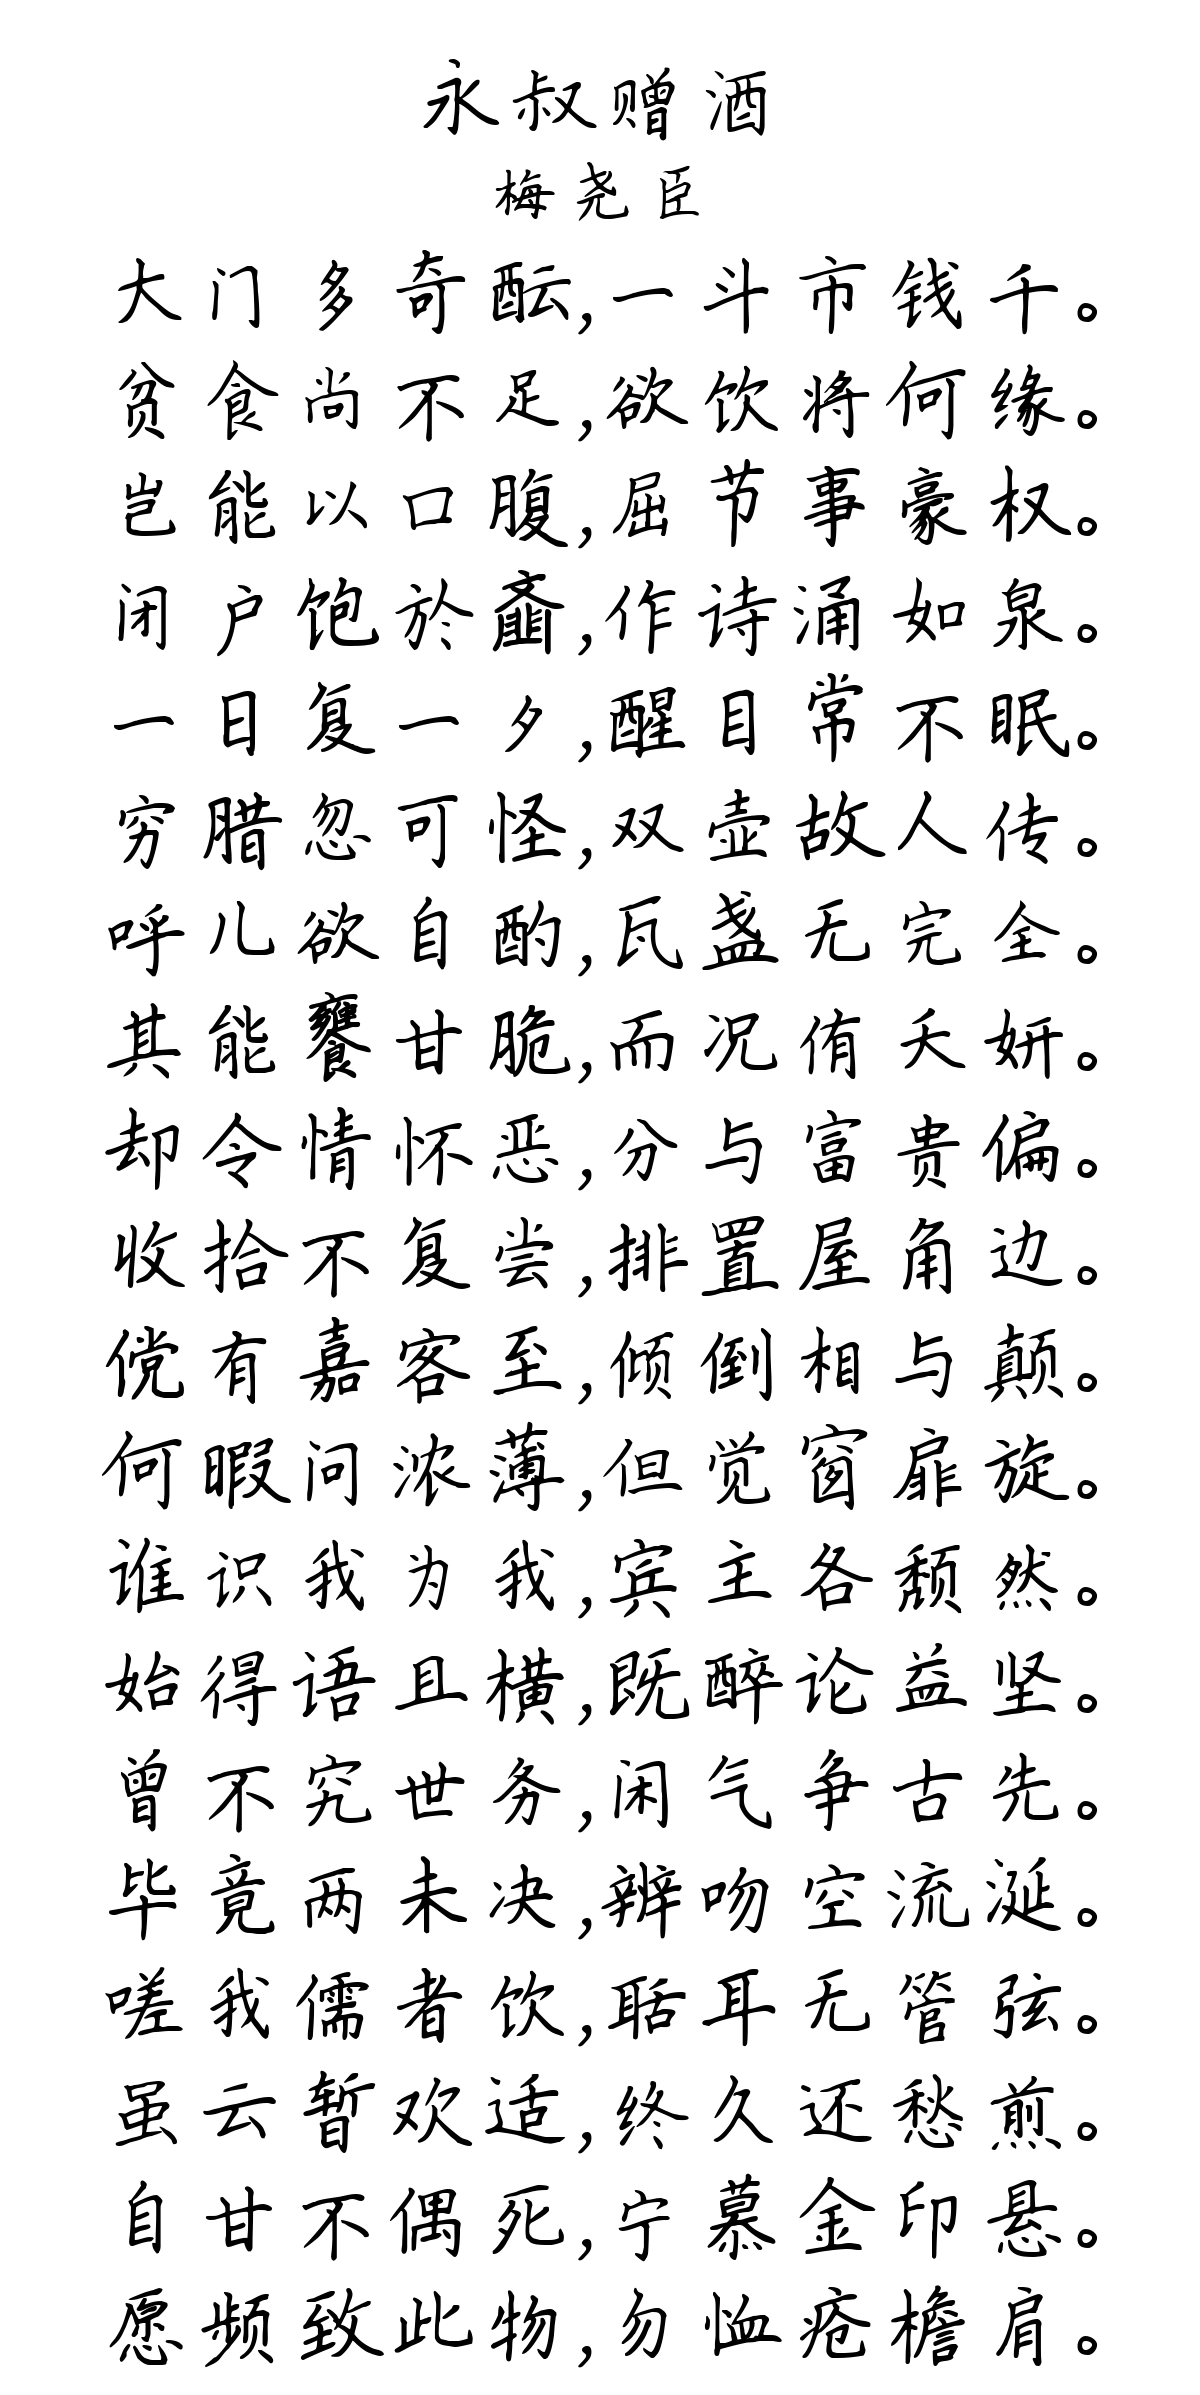 永叔赠酒
梅尧臣
大门多奇酝,一斗市钱千。
贫食尚不足,欲饮将何缘。
岂能以口腹,屈节事豪权。
闭户饱於齑,作诗涌如泉。
一日复一夕,醒目常不眠。
穷腊忽可怪,双壶故人传。
呼儿欲自酌,瓦盏无完全。
其能饔甘脆,而况侑夭妍。
却令情怀恶,分与富贵偏。
收拾不复尝,排置屋角边。
傥有嘉客至,倾倒相与颠。
何暇问浓薄,但觉窗扉旋。
谁识我为我,宾主各颓然。
始得语且横,既醉论益坚。
曾不究世务,闲气争古先。
毕竟两未决,辨吻空流涎。
嗟我儒者饮,聒耳无管弦。
虽云暂欢适,终久还愁煎。
自甘不偶死,宁慕金印悬。
愿频致此物,勿恤疮檐肩。